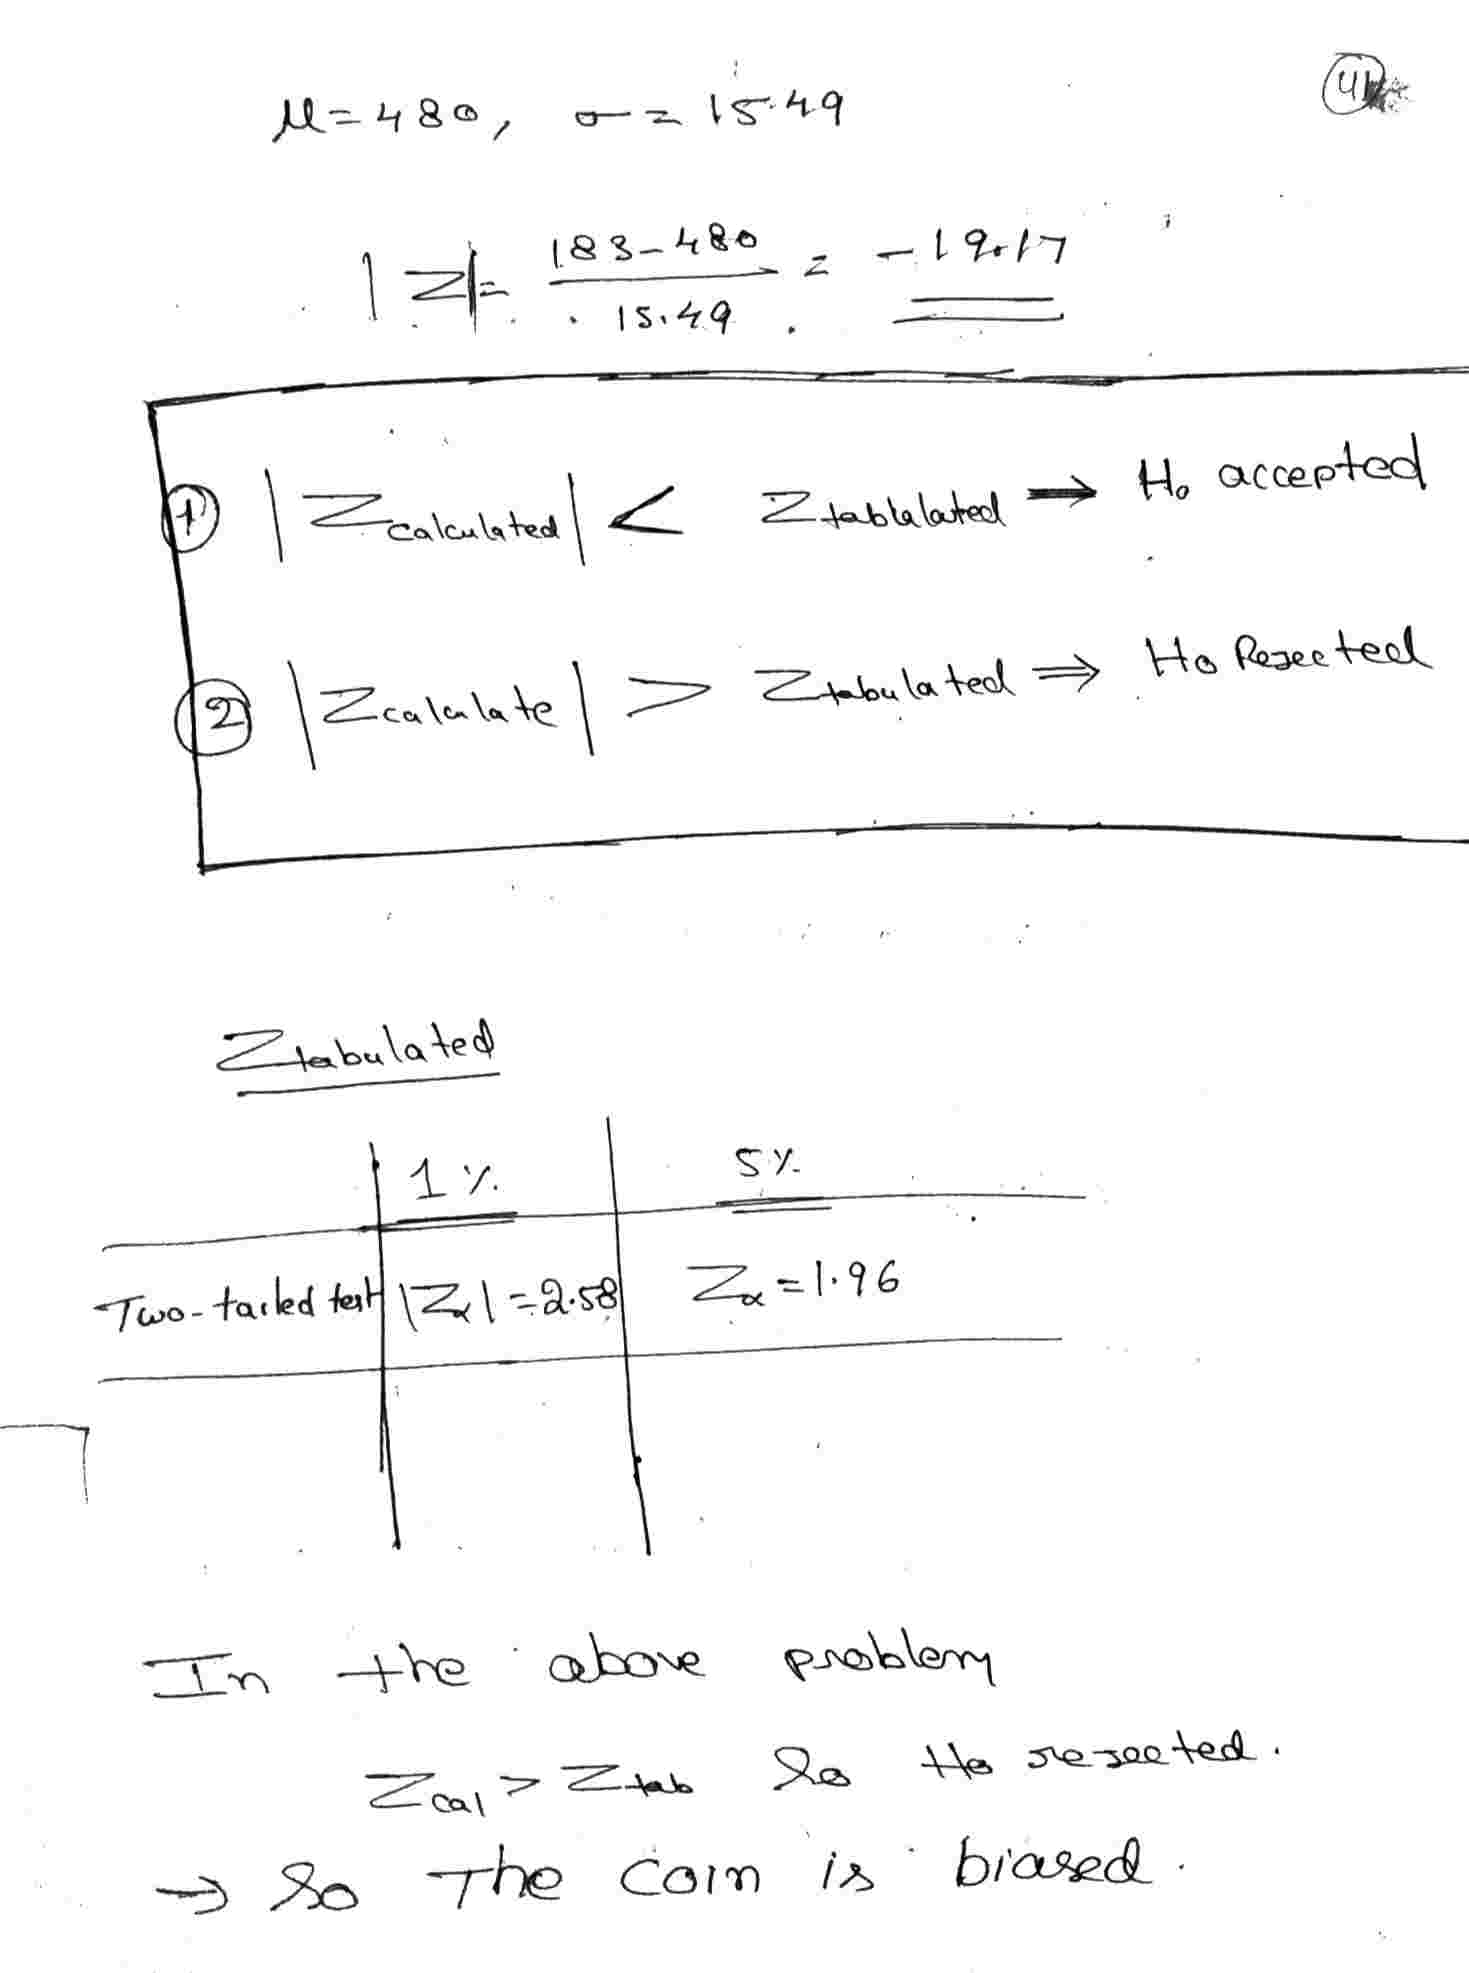 41
μ = 480, σ = 15.49
|Z| = 183-480 / 15.49 = -19.17
① |Zcalculated| < Ztablulated ⇒ Ho accepted
② |Zcalculate| > Ztabulated ⇒ Ho Rejected
Ztabulated
1 % 5 %
Two-tailed test |Zα| = 2.58 Zα = 1.96
In the above problem
Zcal > Ztab So Ho rejected.
→ So The coin is biased.